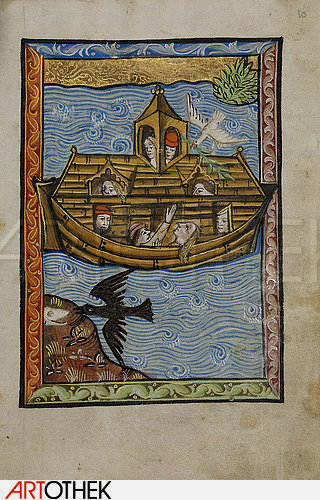 10
ARTOTHEK